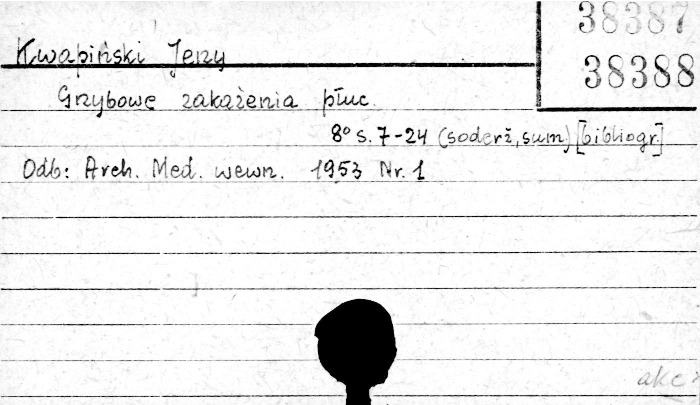 38387
38388
Kwapiński Jerzy
Grzybowe zakażenia płuc.
8° s. 7-24 (soderż, sum) [bibliogr]
Odb: Arch. Med. wewn. 1953 Nr. 1
akc